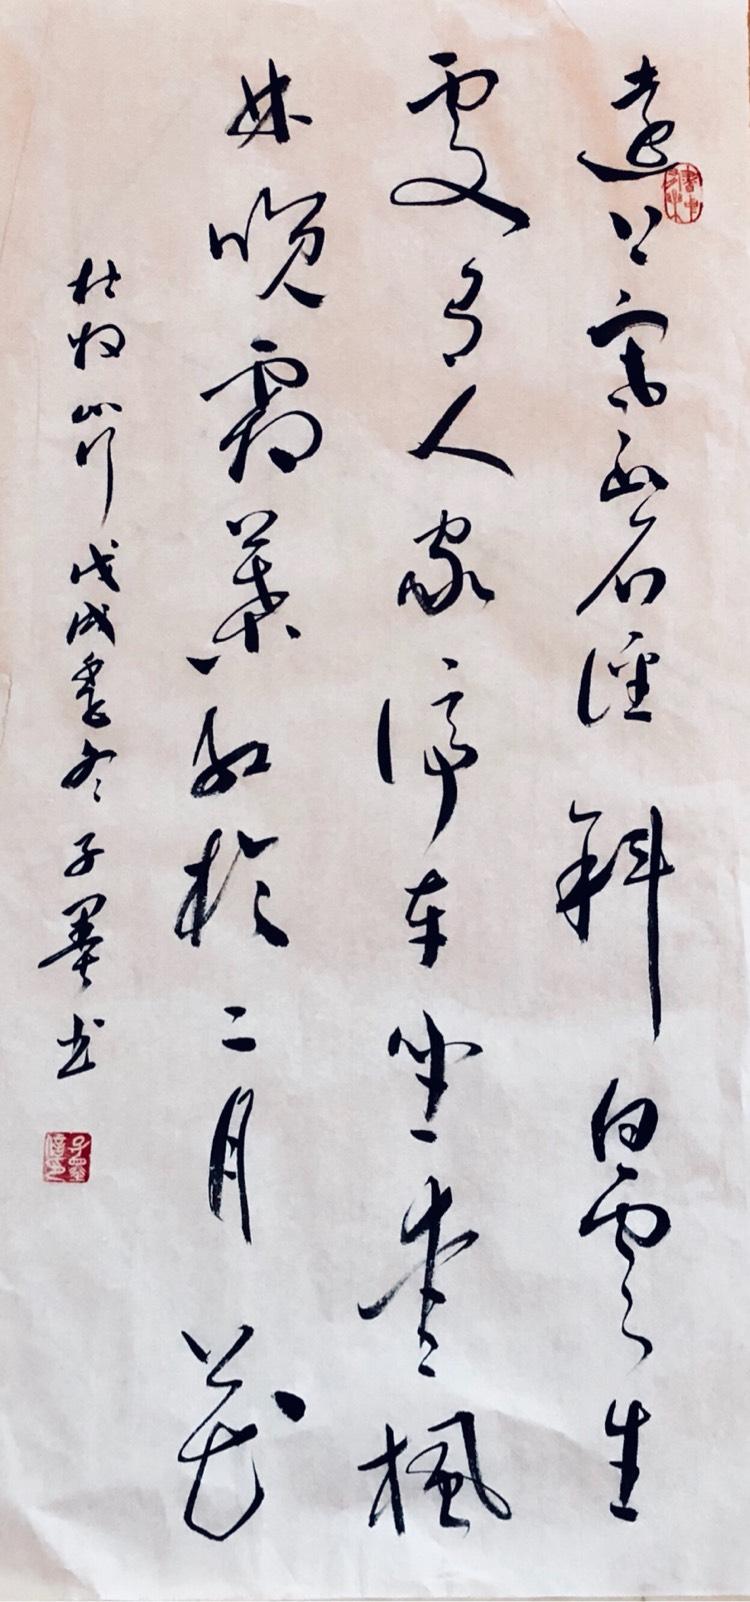 遠上寒山石徑斜白雲生
處有人家停車坐愛楓
林晚霜葉紅於二月花
杜牧山行 戊戌季冬 子墨书